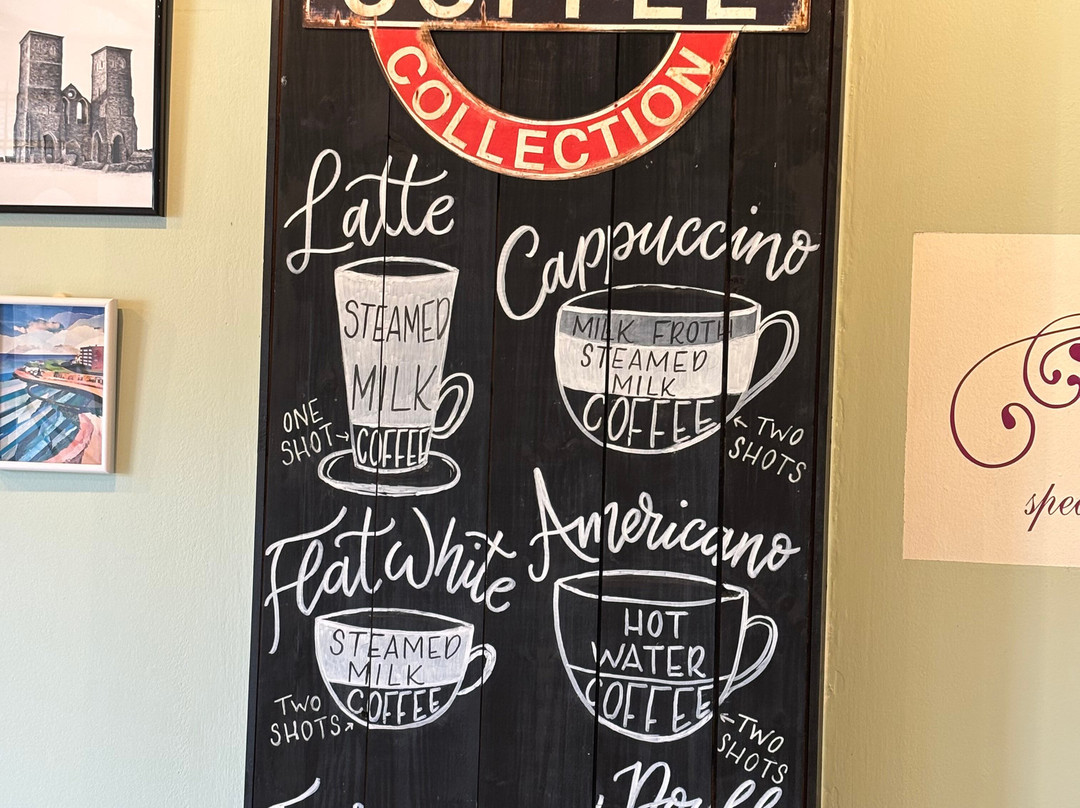 COFFEE
COLLECTION
Latte
STEAMED
MILK
COFFEE
ONE
SHOT
Cappuccino
MILK FROTH
STEAMED
MILK
COFFEE
TWO
SHOTS
Flat White
STEAMED
MILK
COFFEE
TWO
SHOTS
Americano
HOT
WATER
COFFEE
TWO
SHOTS